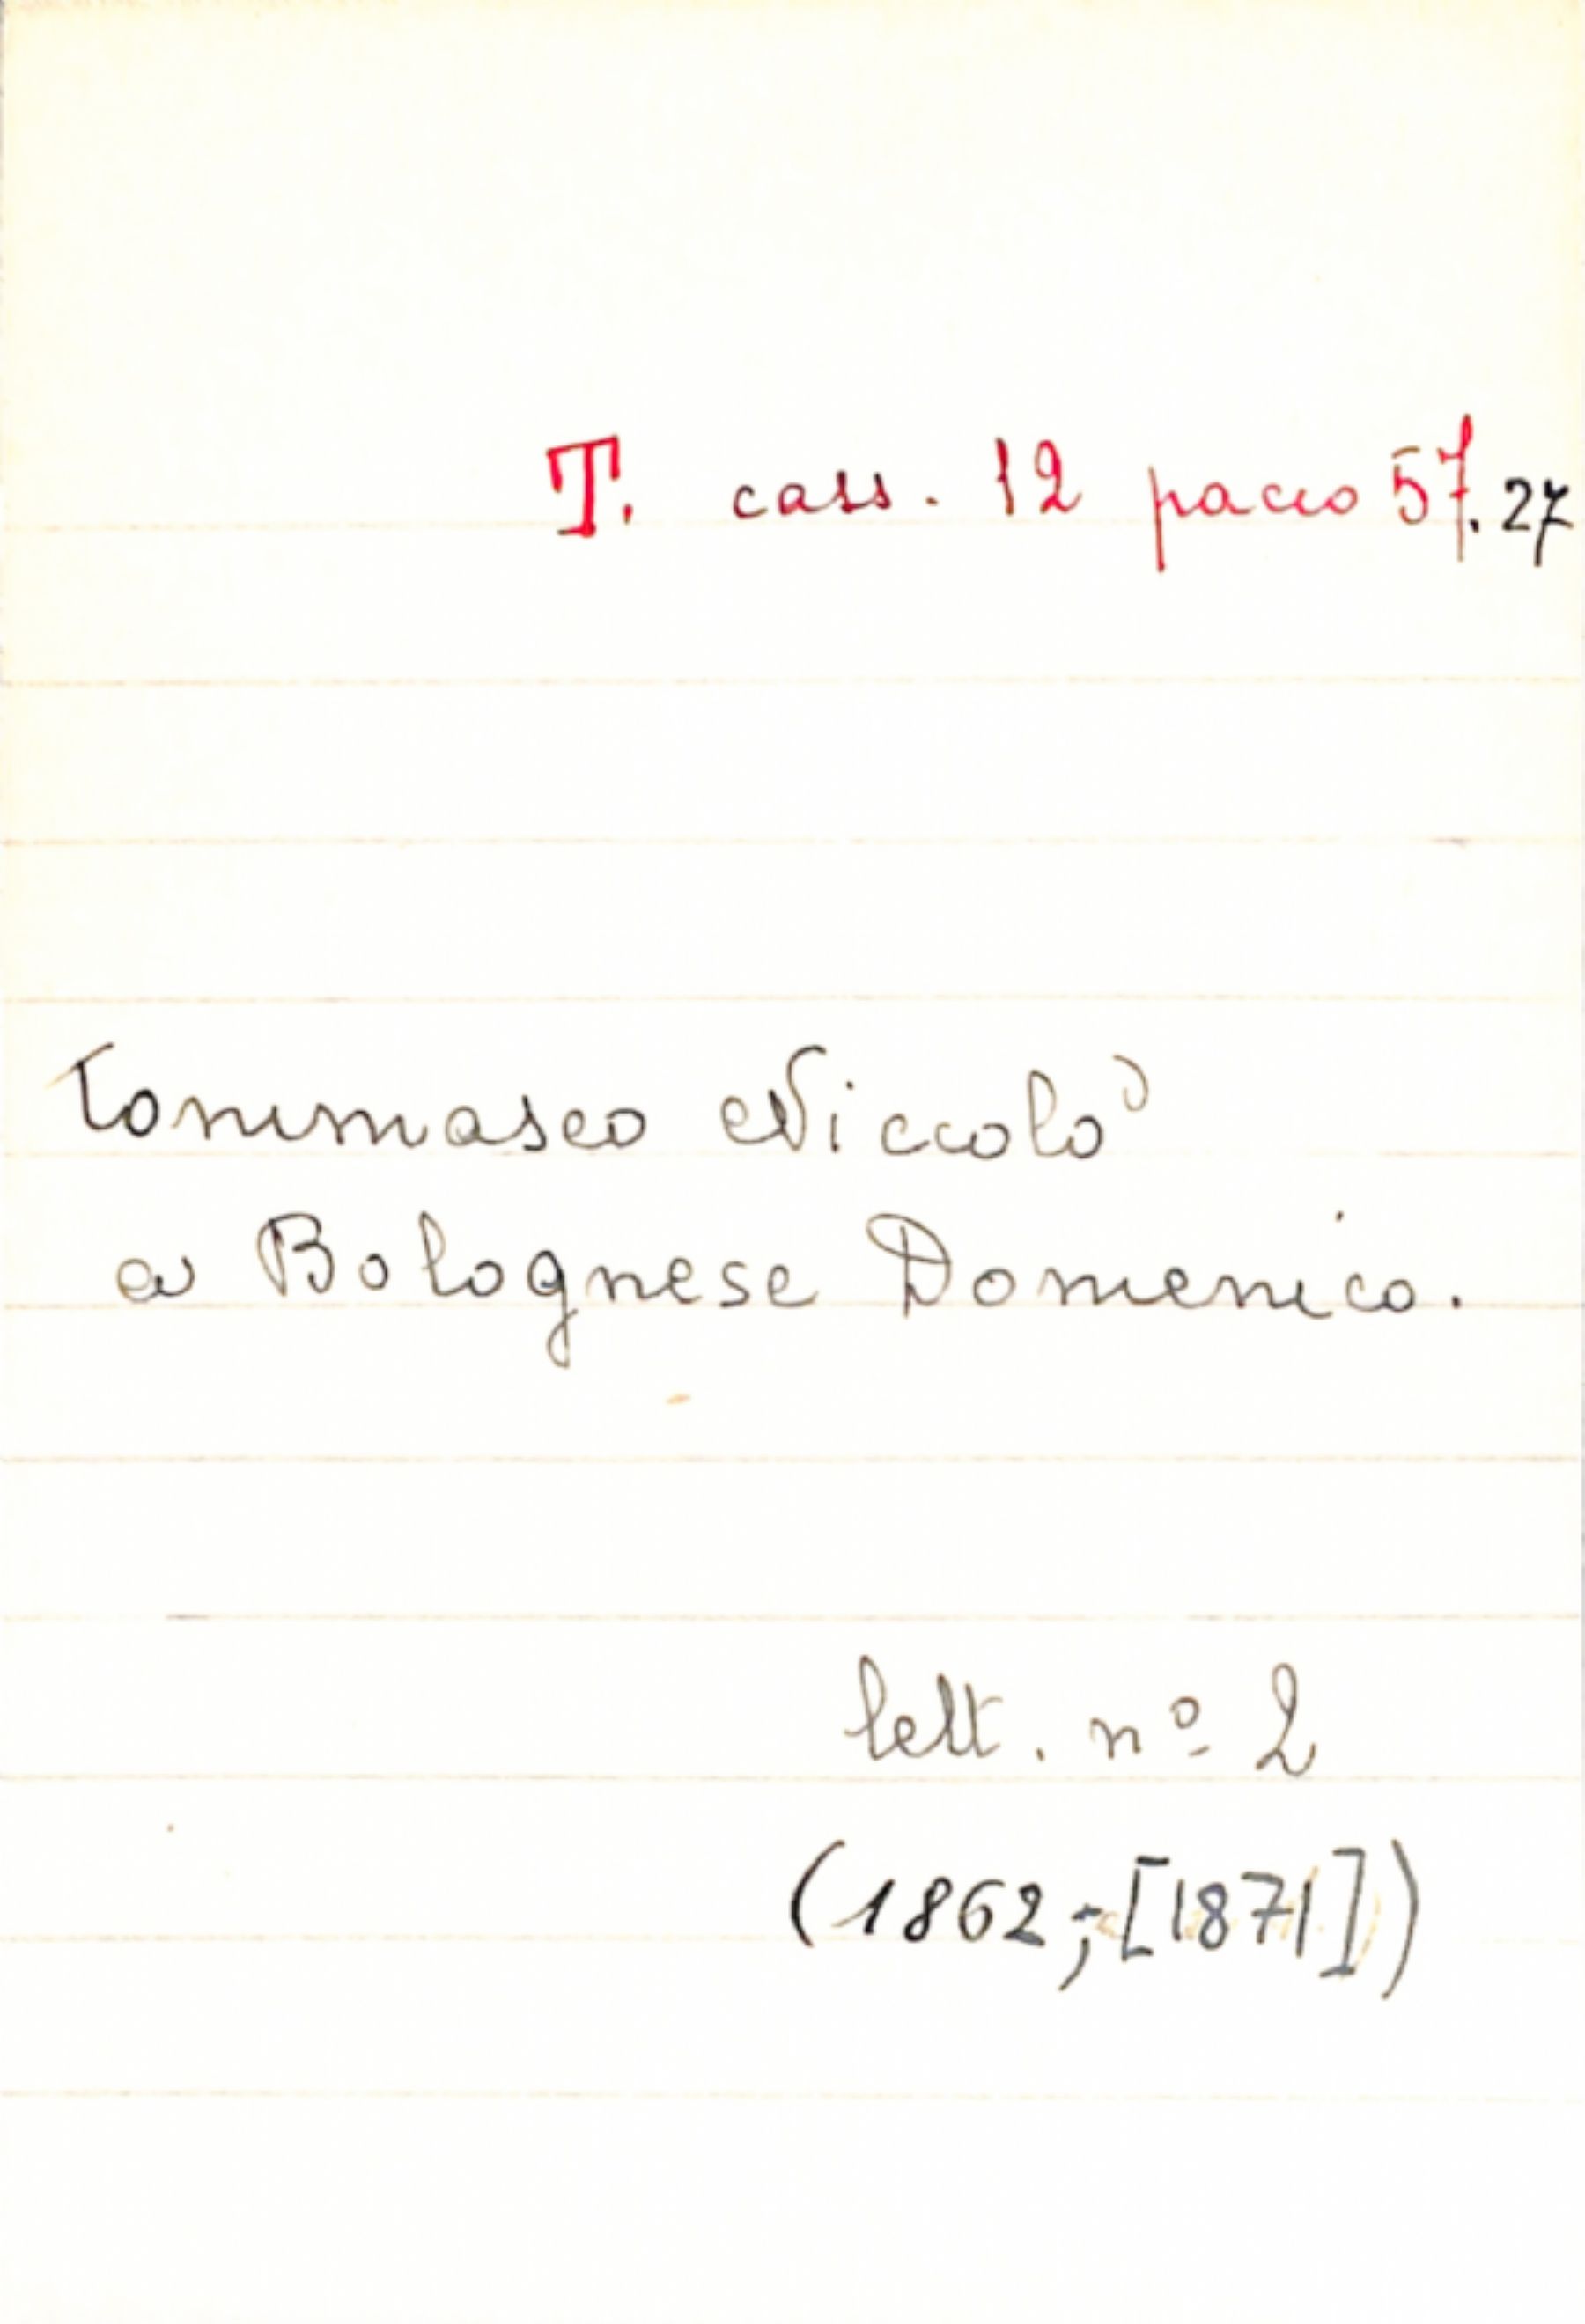 T. cass. 12 pacco 57.27
Tommaseo Niccolò
a Bolognese Domenico.
lett. nº 2
(1862;-[1871])